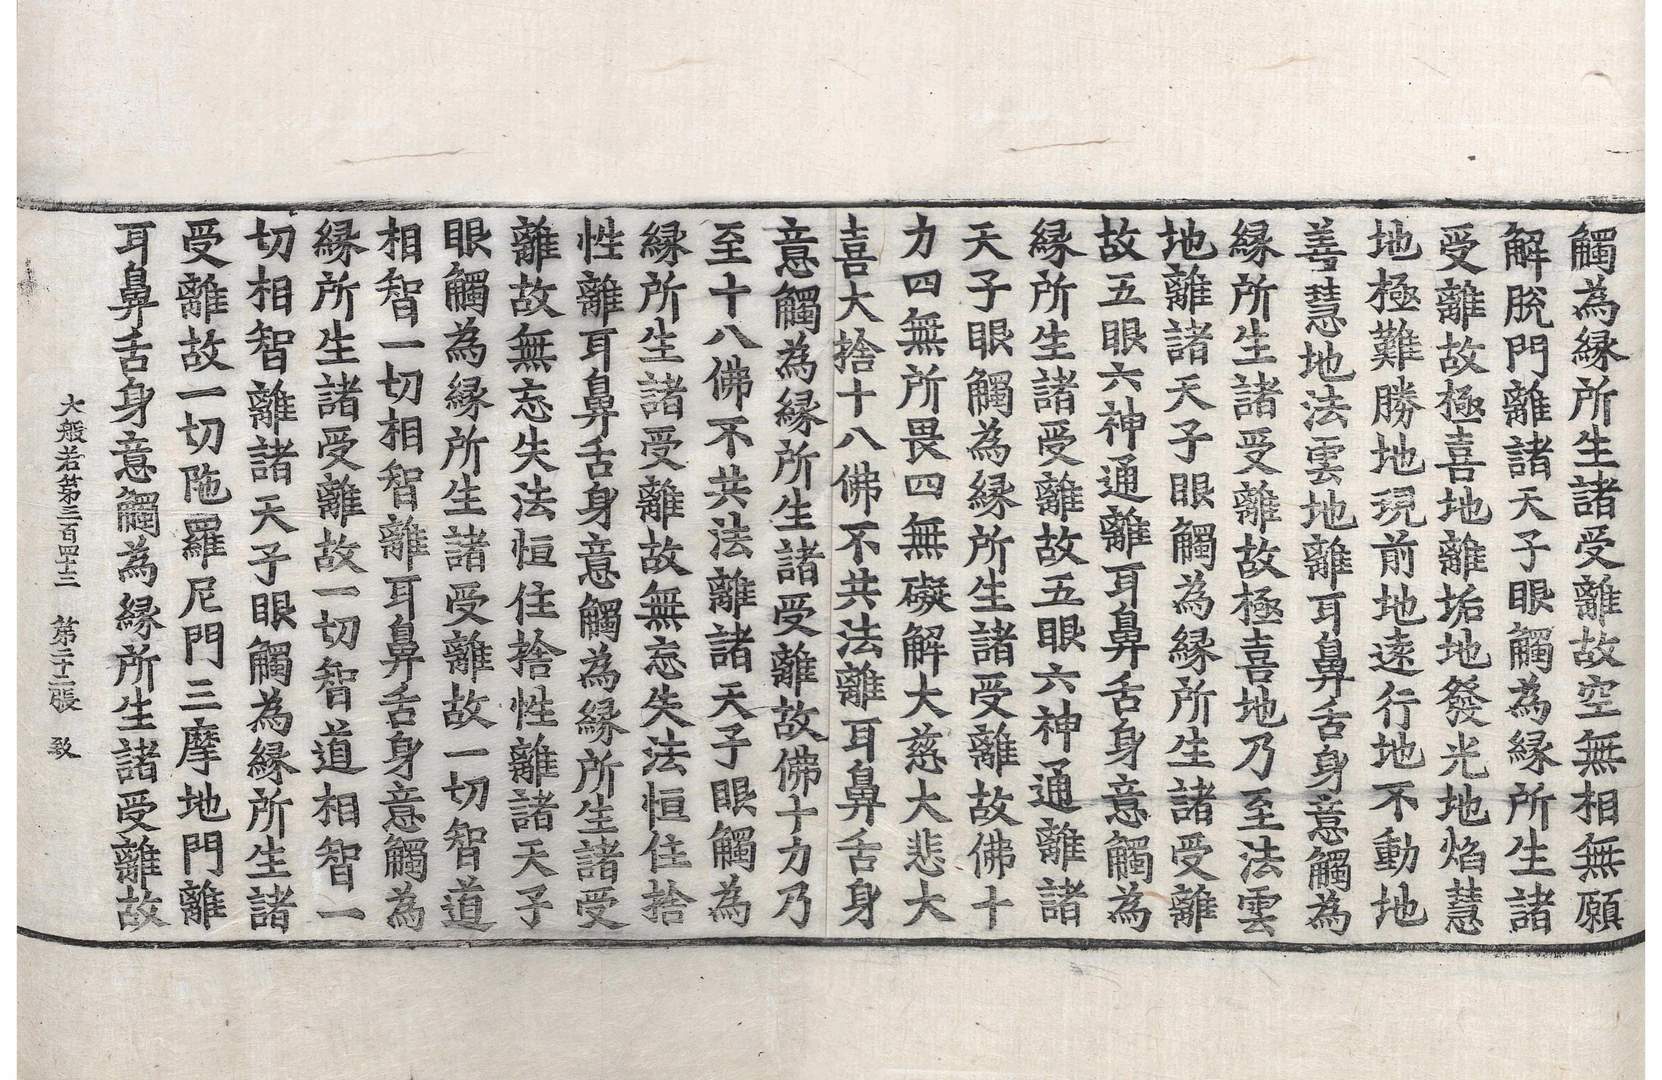 觸為縁所生諸受離故空無相無願
解脫門離諸天子眼觸為縁所生諸
受離故極喜地離垢地發光地焰慧
地極難勝地現前地遠行地不動地
善慧地法雲地離耳鼻舌身意觸為
縁所生諸受離故極喜地乃至法雲
地離諸天子眼觸為縁所生諸受離
故五眼六神通離耳鼻舌身意觸為
縁所生諸受離故五眼六神通離諸
天子眼觸為縁所生諸受離故佛十
力四無所畏四無礙解大慈大悲大
喜大捨十八佛不共法離耳鼻舌身
意觸為縁所生諸受離故佛十力乃
至十八佛不共法離諸天子眼觸為
縁所生諸受離故無忘失法恒住捨
性離耳鼻舌身意觸為縁所生諸受
離故無忘失法恒住捨性離諸天子
眼觸為縁所生諸受離故一切智道
相智一切相智離耳鼻舌身意觸為
縁所生諸受離故一切智道相智一
切相智離諸天子眼觸為縁所生諸
受離故一切陁羅尼門三摩地門離
耳鼻舌身意觸為縁所生諸受離故
大般若第三百四十三 第二十二張 致